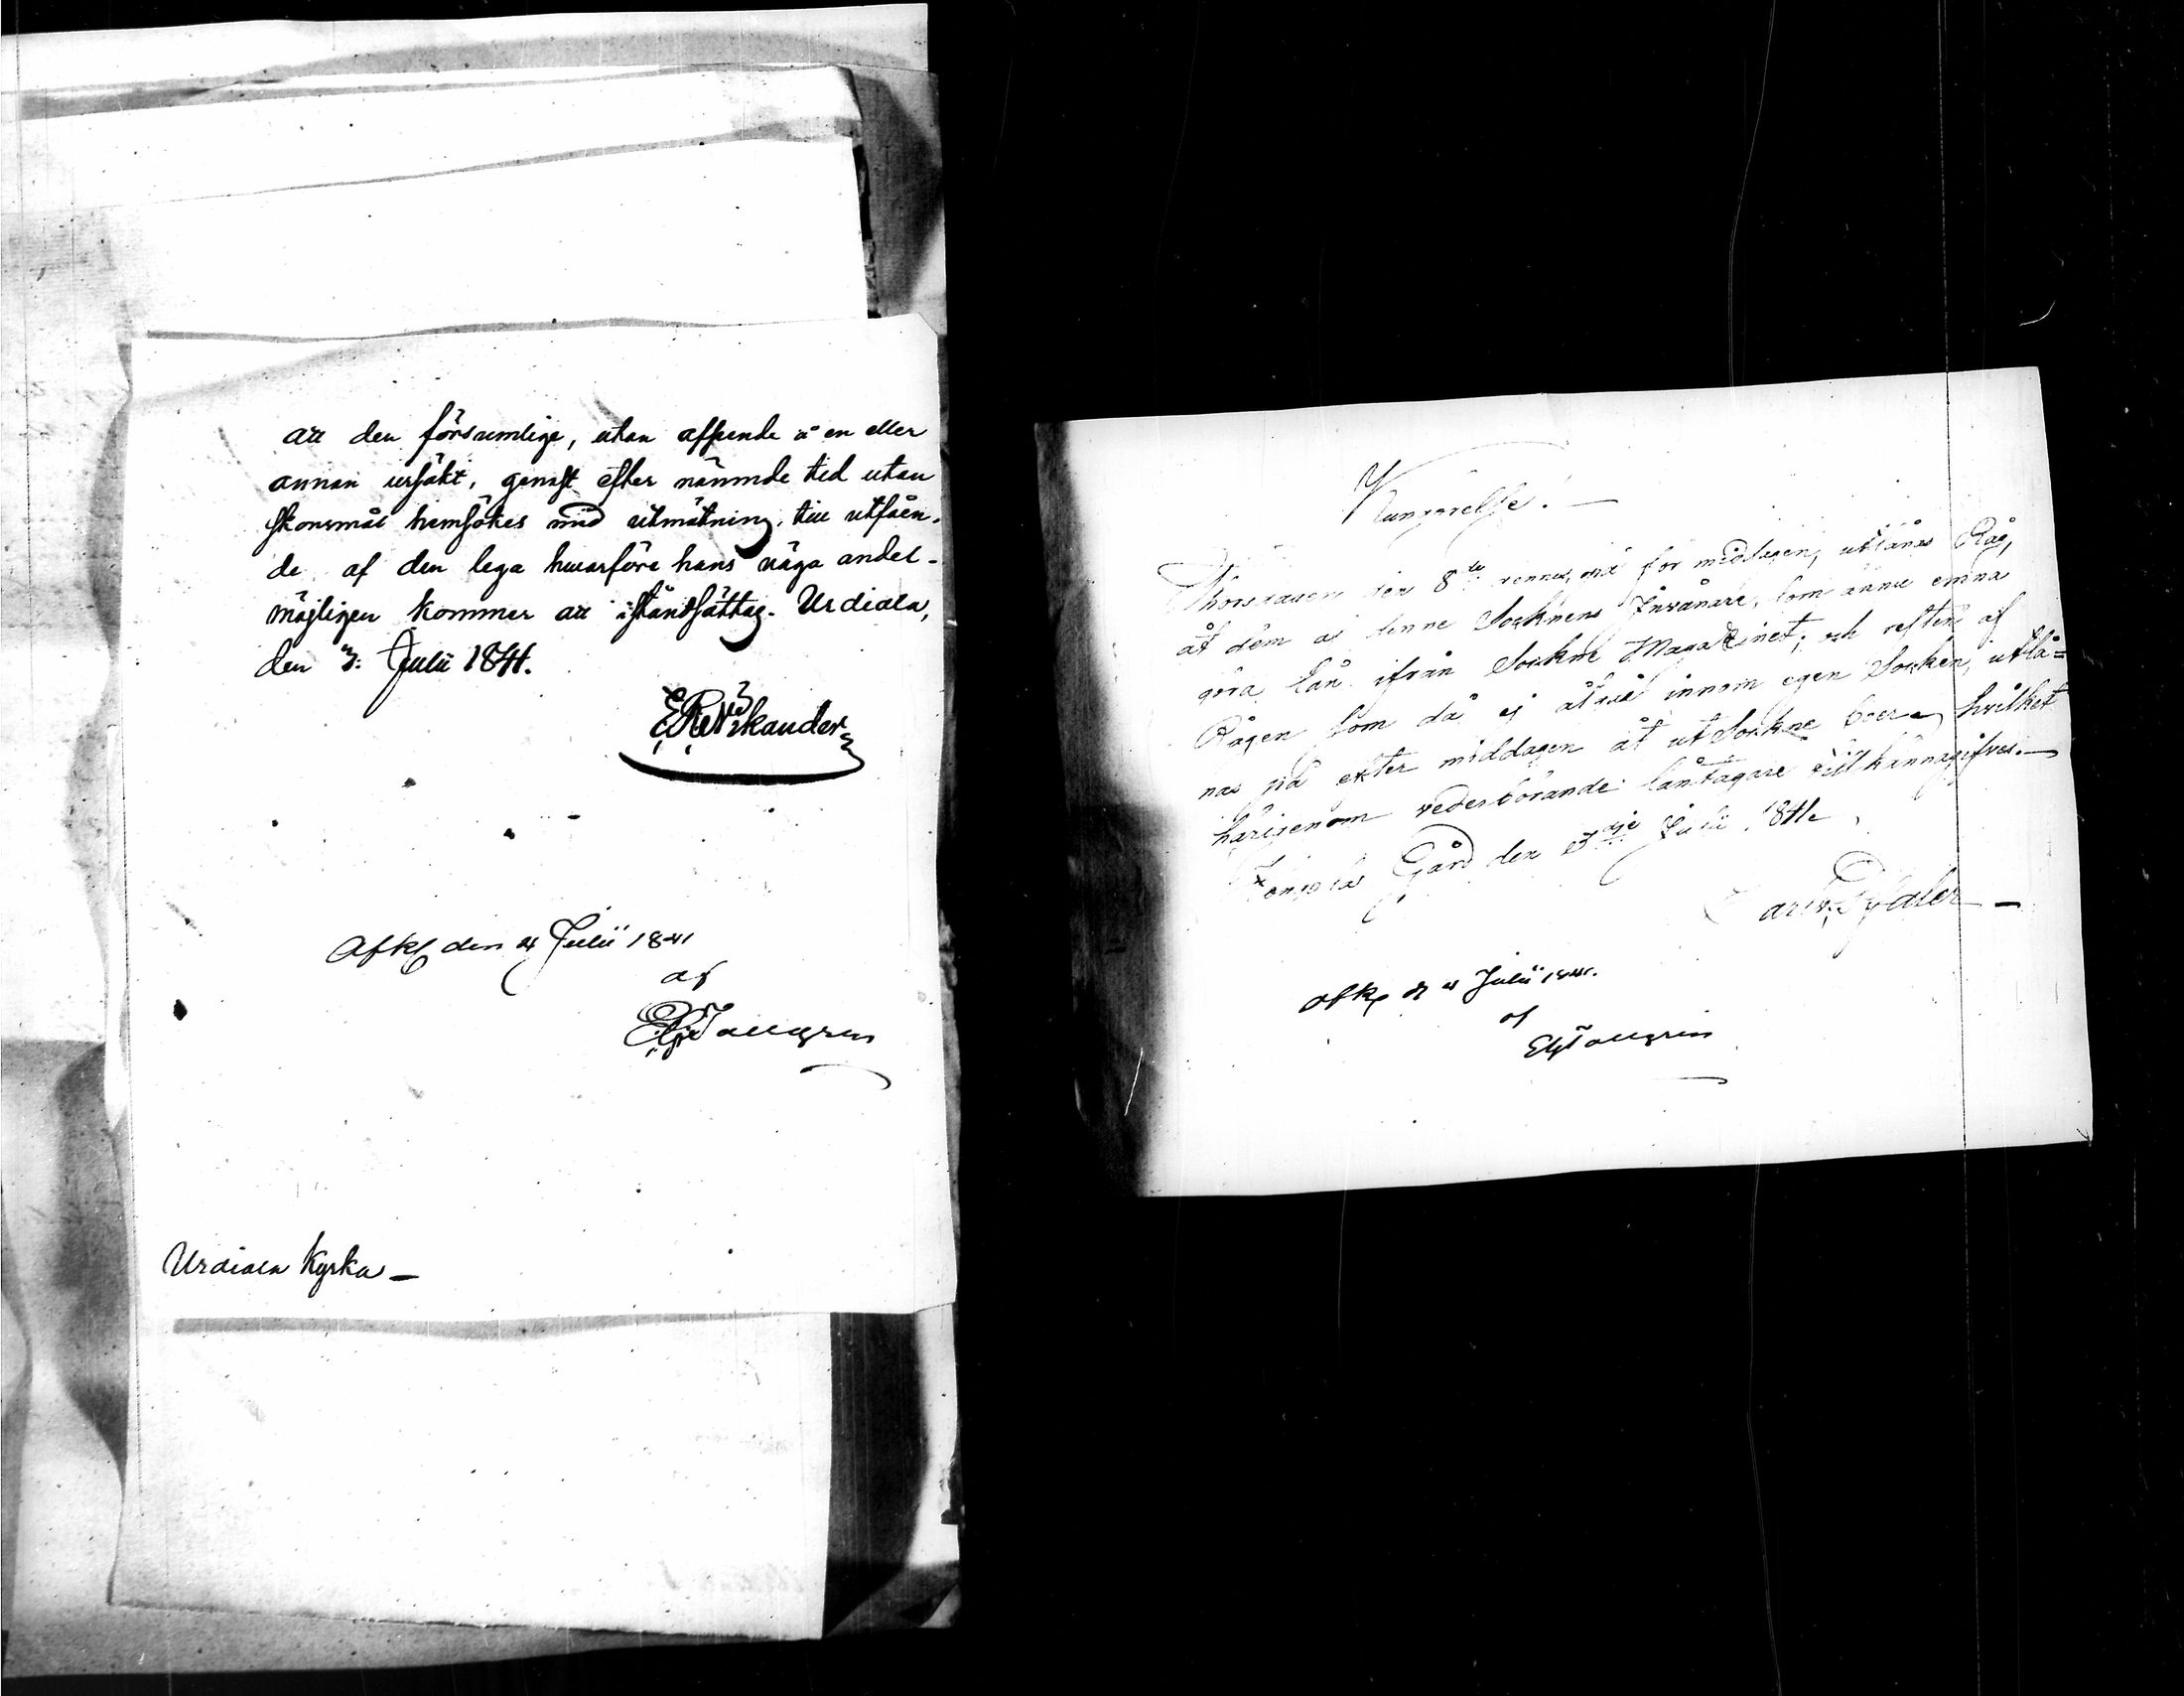 att den försumlige, utan afseende å en eller
annan ursäkt, genast efter nämnde tid utan
skonsmål hemsökes med utmätning, till utfåen-
de af den lega hwarföre hans wäga andel
möjligen kommer att iståndsättas. Urdiala,
den 3: Julii 1841.
Afk. den 4 Julii 1841
af
Tallgren
Urdiala Kyrka —
Kungörelse! —
Thorsdagen den 8de dennes, på för middagen, utlånas Råg,
åt dem af denne Socknens Invånare, som ännu ämna
göra lån ifrån Sockne Magazinet; och resten af
Rågen som då ej åtgår innom egen Socken, utlå=
nas på efter middagen åt utsockne boer, hvilket
härigenom vederbörande låntagare tillkännagifves. —
Gård den 3dje Julii 1841.
Afk. d 4 Julii 1841.
af
Tallgren